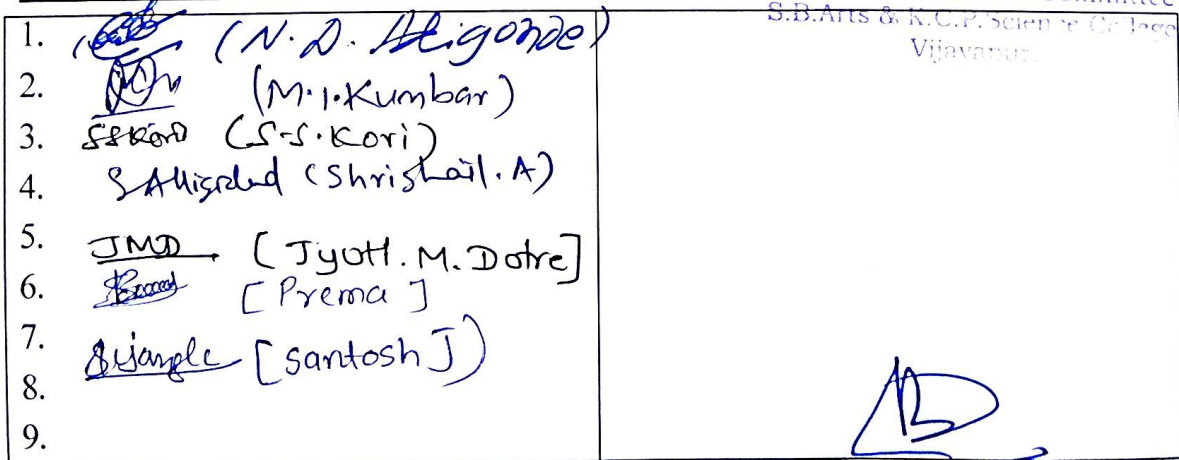 S.B.Arts & K.C.P. Science College
Vijayapur.
1. (N.D. Aligonde)
2. (M.I.Kumbar)
3. SSKori (S.S.Kori)
4. (Shrishail.A)
5. JMD [Jyoti.M.Dotre]
6. [Prema]
7. [Santosh J)
8.
9.